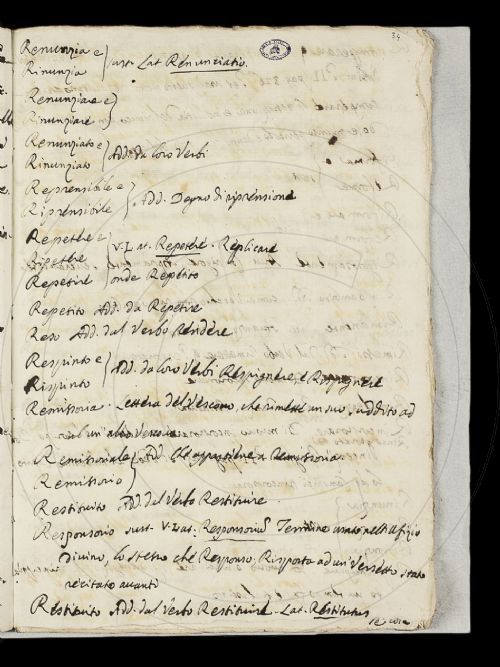 34
Renunzia e
Rinunzia } sust. Lat. Renunziatio.
Renunziare e
Rinunziare
Renunziato e
Rinunziato } Add. da loro Verbi
Reprensibile e
Riprensibile } Add. Degno di riprensione
Repetere e
Ripetere
Repetire } v. Lat. Repetere. Replicare
onde Repetito
Repetito Add. da Repetire
Reso Add. dal Verbo Rendere
Respinto e
Rispinto } Add. da loro Verbi Respignere, e Rispignere
Remissoria. Lettera del Vescovo, che rimette un suo suddito ad
un altro Vescovo
Remissoriale
Remissorio } Add. Che appartiene a Remissoria.
Restituito Add. dal Verbo Restituire.
Responsorio sust. V. Lat. Responsoriu Termine usato nell'Ufizio
Divino, lo stesso che Responso, Risposta ad un Versetto stato
recitato avanti
Restituito Add. dal Verbo Restituire. Lat. Restitutus